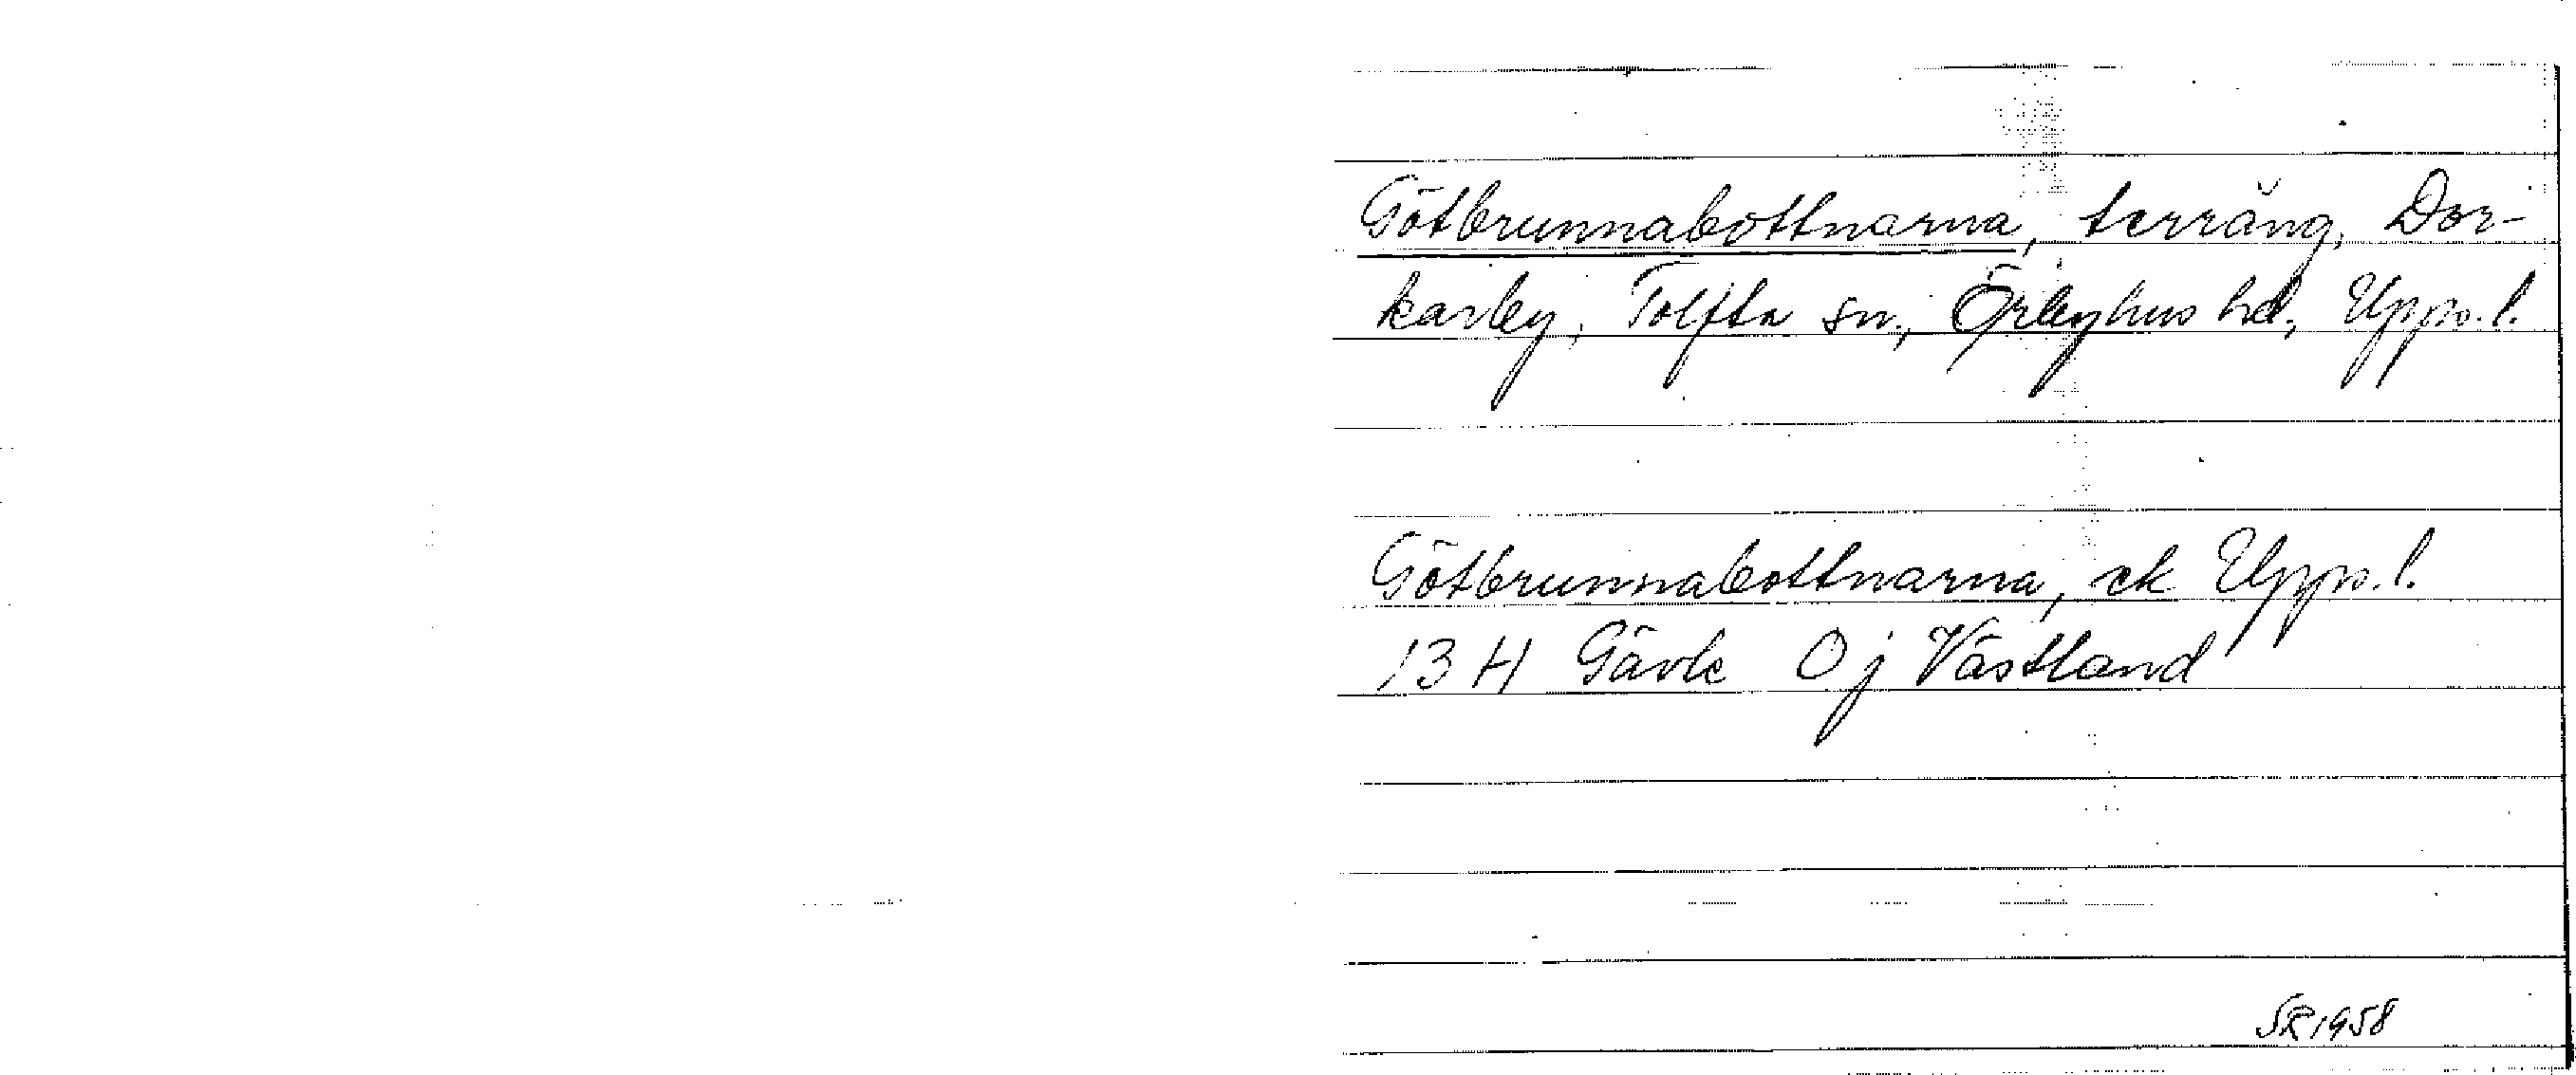 Götbrunnabottnarna, terräng, Dor-
karby, Tolfta sn., Örbyhus hd, Upps. l.
Götbrunnabottnarna, ek Upps. l.
13 H Gävle 0 j Västland
SR 1958